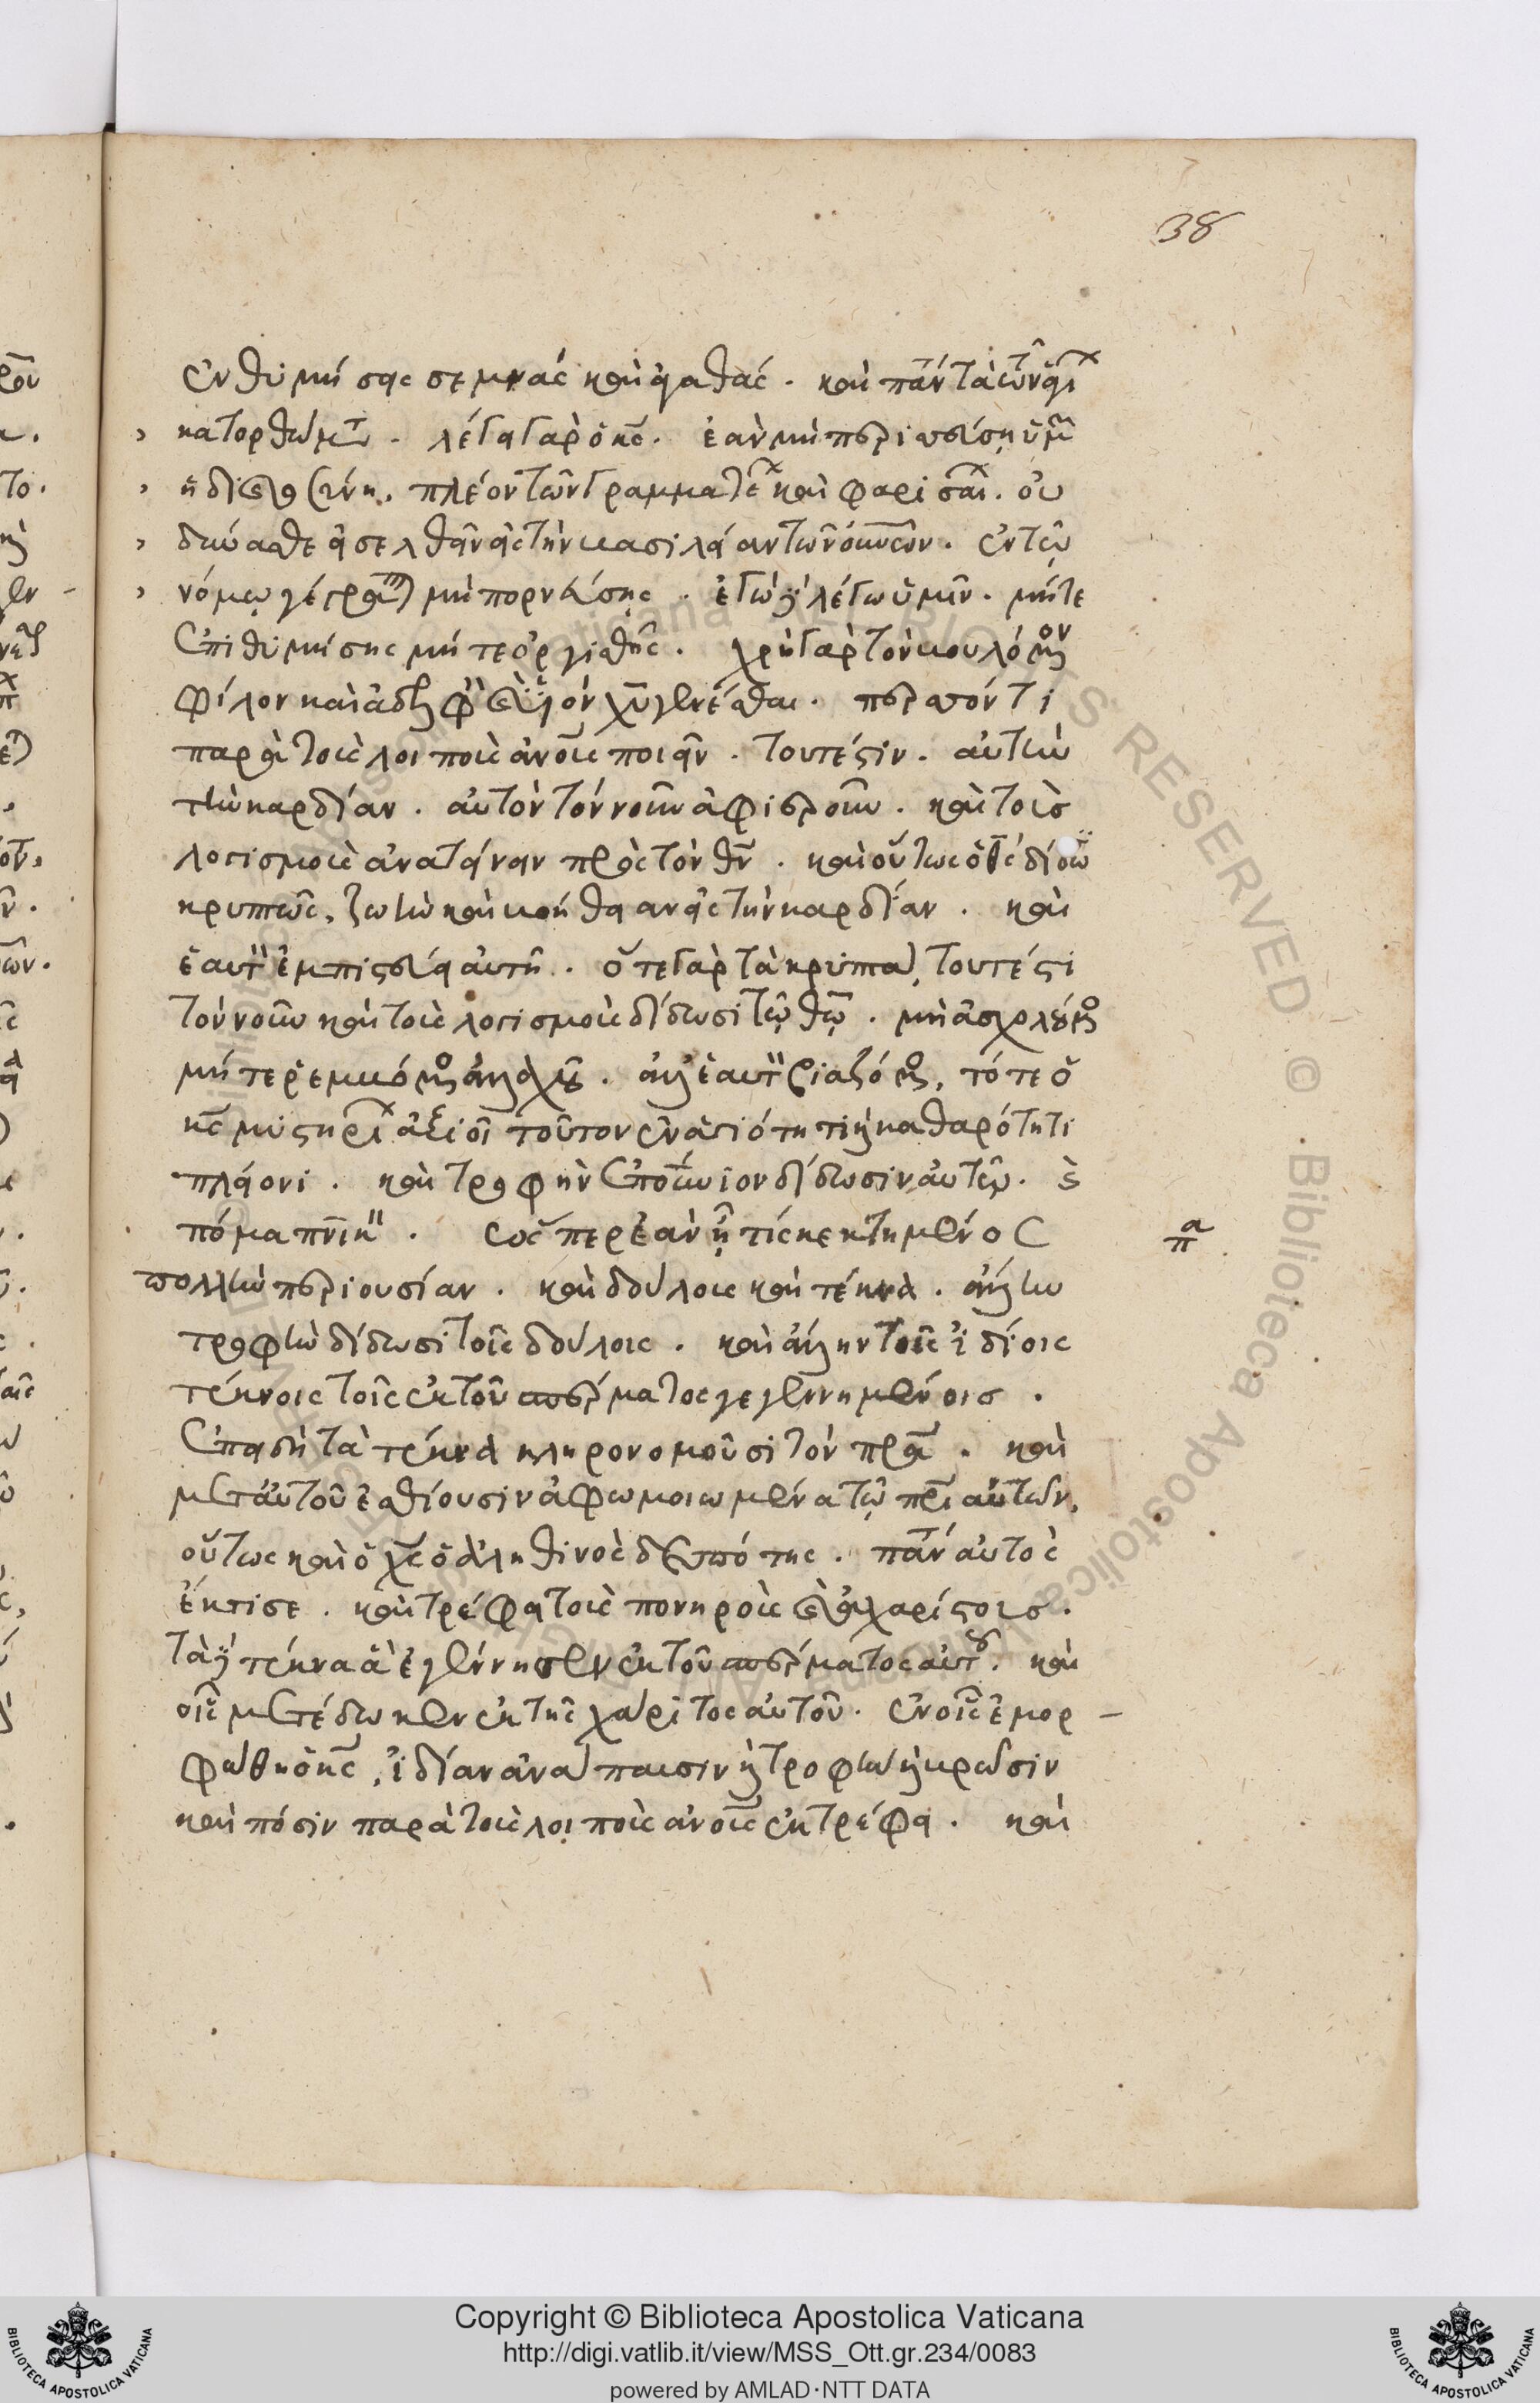 38
ἐνθυμήσεις σεμνάς καὶ ἀγαθάς. καὶ πάντα τὰ τῶν ἁγί
κατορθώμτ. λέγει γὰρ ὁ κς. ἐὰν μὴ περισσεύσῃ ὑμ
ἡ δικαιοσύνη, πλέον τῶν γραμματέ καὶ φαρισαί. οὐ
δύνασθε εἰσελθεῖν εἰς τὴν βασιλείαν τῶν οὐνῶν. ἐν τῷ
νόμῳ γέγραπ μὴ πορνεύσῃς. ἐγὼ δὲ λέγω ὑμῖν. μήτε
ἐπιθυμήσης μήτε ὀργισθῆς. χρὴ γὰρ τὸν βουλόμενον
φίλον καὶ ἀδελφὸν καὶ υἱὸν χυ γενέσθαι. περισσόν τι
παρὰ τοὺς λοιποὺς ἀνους ποιεῖν. τουτέστιν. αὐτὴν
τὴν καρδίαν. αὐτὸν τὸν νοῦν ἀφιεροῦν. καὶ τοὺς
λογισμοὺς ἀνατείνειν πρὸς τὸν θν. καὶ οὕτως ὁ θς δίδωσι
κρυπτῶς, ζωὴν καὶ βοήθειαν εἰς τὴν καρδίαν. καὶ
ἑαυτὸν ἐμπιστεύει αὐτῆ. ὅτε γὰρ τὰ κρυπτὰ, τουτέστι
τὸν νοῦν καὶ τοὺς λογισμοὺς δίδωσι τῷ θῷ. μὴ ἀσχολούμενος
μήτε ῥεμβόμενος ἀλλαχοῦ. ἀλλ' ἑαυτὸν βιαζόμενος, τότε ὁ
κς μυστηρί ἀξιοῖ τοῦτον ἐν ἁγιότητι καὶ καθαρότητι
πλείονι. καὶ τροφὴν ἐπουνιον δίδωσιν αὐτῷ. καὶ
πόμα πνικὸν. ὥσπερ ἐὰν ἦ τίς κεκτημένος
πα
πολλὴν περιουσίαν. καὶ δούλους καὶ τέκνα. ἄλλην
τροφὴν δίδωσι τοῖς δούλοις. καὶ ἄλλην τοῖς ἰδίοις
τέκνοις τοῖς ἐκ τοῦ σπέρματος γεγεννημένοις.
ἐπειδὴ τὰ τέκνα κληρονομοῦσι τὸν πρα. καὶ
μετ' αὐτοῦ ἐσθίουσιν ἀφωμοιωμένα τῷ πρι αὐτῶν,
οὕτως καὶ ὁ χς ὁ ἀληθινὸς δεσπότης. πάντ αὐτὸς
ἔκτισε. καὶ τρέφει τοὺς πονηροὺς καὶ ἀχαρίστους.
τὰ δὲ τέκνα ἃ ἐγέννησεν ἐκ τοῦ σπέρματος αὐτοῦ. καὶ
οἷς μετέδωκεν ἐκ τῆς χάριτος αὐτοῦ. ἐν οἷς ἐμορ-
φώθη ὁ κς, ἰδίαν ἀνάπαυσιν καὶ τροφὴν καὶ βρῶσιν
καὶ πόσιν παρὰ τοὺς λοιποὺς ἀνους ἐκτρέφει. καὶ
Copyright © Biblioteca Apostolica Vaticana
http://digi.vatlib.it/view/MSS_Ott.gr.234/0083
powered by AMLAD·NTT DATA